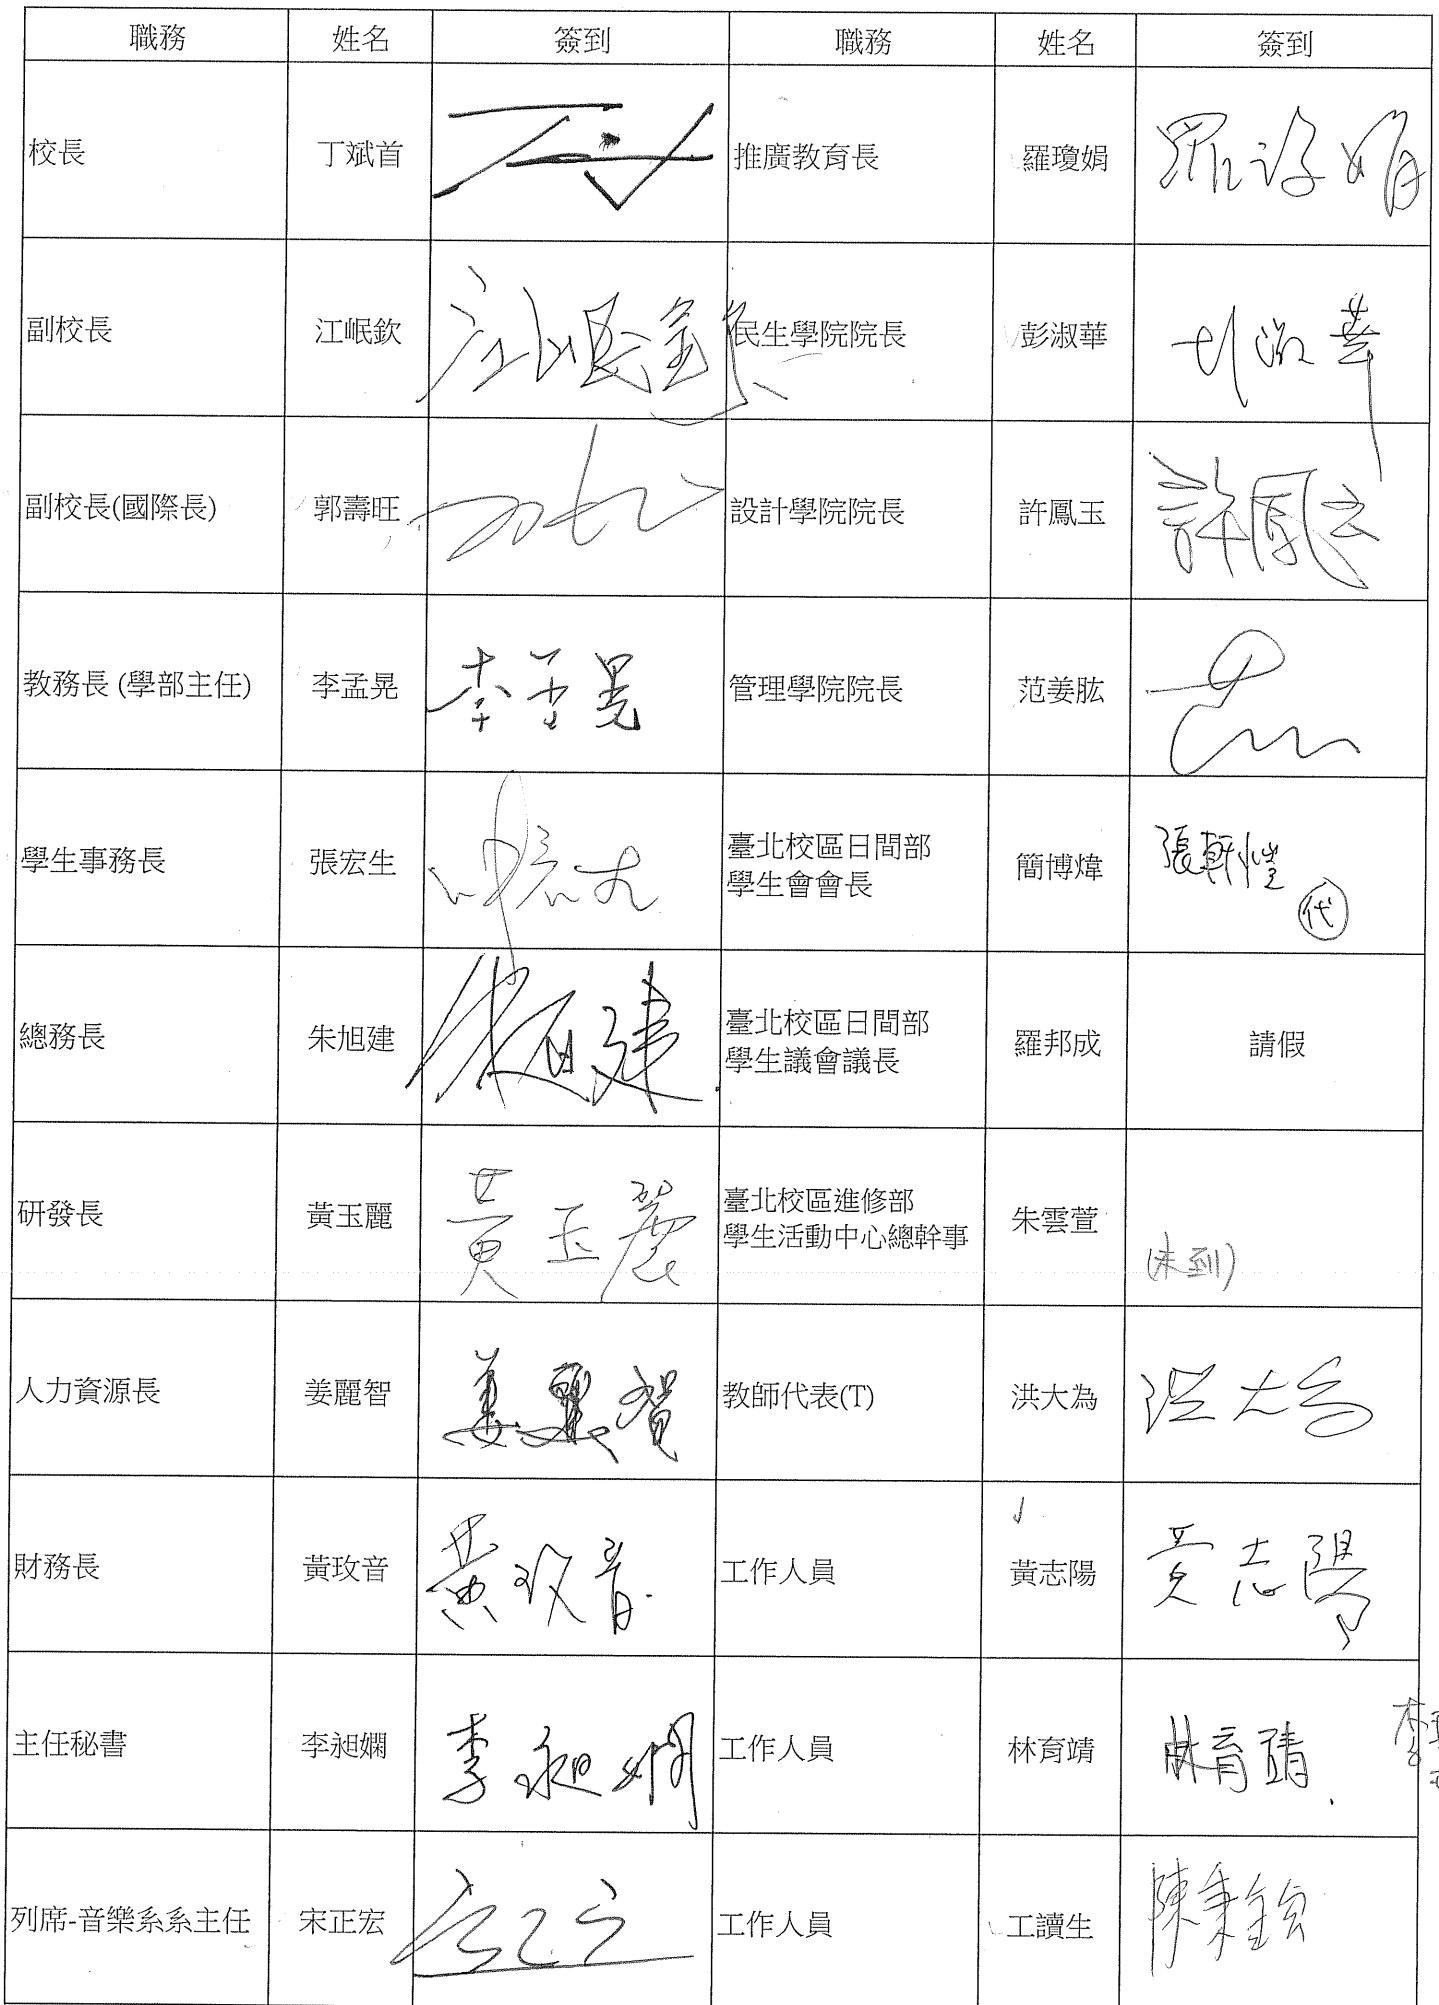 職務 姓名 簽到 職務 姓名 簽到
校長 丁斌首 推廣教育長 羅瓊娟 羅瓊娟
副校長 江岷欽 江岷欽 民生學院院長 彭淑華 彭淑華
副校長(國際長) 郭壽旺 設計學院院長 許鳳玉 許鳳玉
教務長 (學部主任) 李孟晃 李孟晃 管理學院院長 范姜肱
學生事務長 張宏生 臺北校區日間部 簡博煒 張軒愷
學生會會長 代
總務長 朱旭建 朱旭建 臺北校區日間部 羅邦成 請假
學生議會議長
研發長 黃玉麗 黃玉麗 臺北校區進修部 朱雲萱
學生活動中心總幹事 (未到)
人力資源長 姜麗智 姜麗智 教師代表(T) 洪大為 洪大為
財務長 黃玫音 黃玫音 工作人員 黃志陽 黃志陽
主任秘書 李昶嫻 李昶嫻 工作人員 林育靖 林育靖 李
列席-音樂系系主任 宋正宏 工作人員 工讀生